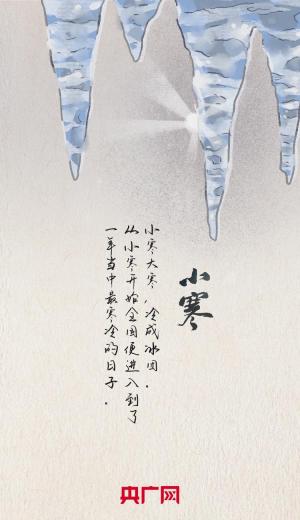 小寒
小寒大寒，冷成冰团．
从小寒开始全国便进入到了
一年当中最寒冷的日子．
央广网